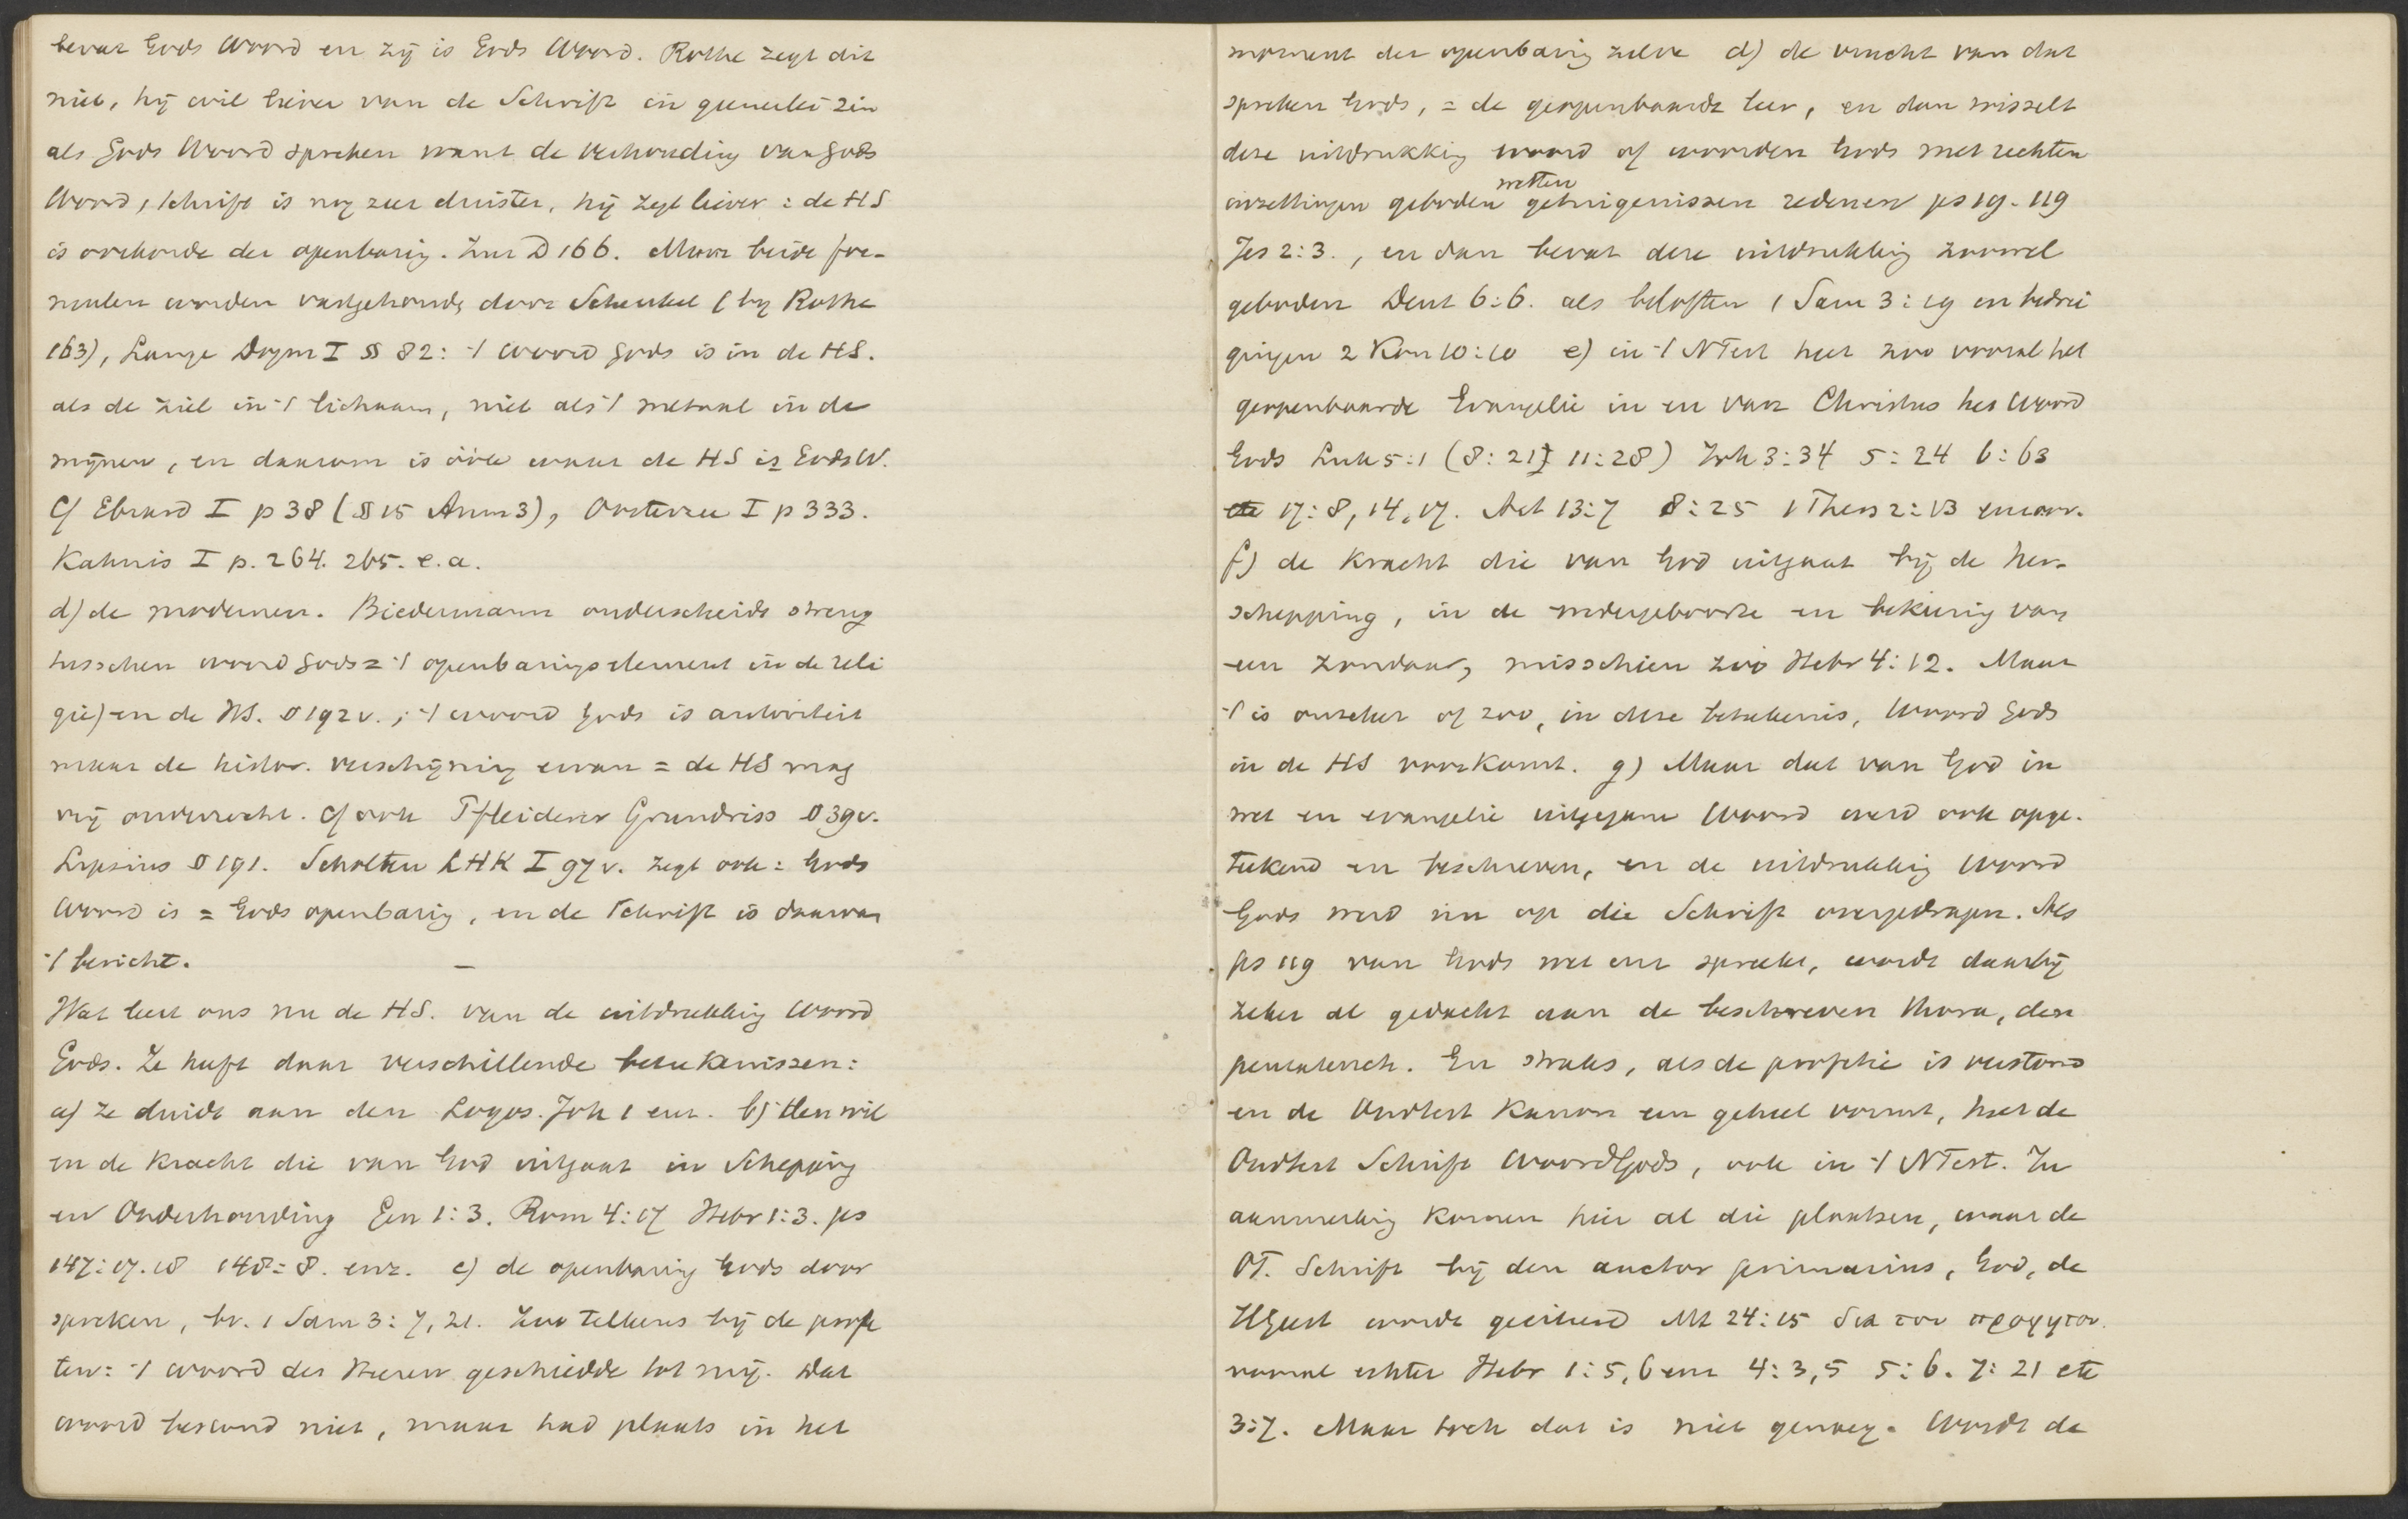 bevat Gods Woord en zij is Gods Woord. Rothe zegt dit
niet, hij wil liever van de Schrift in geheel zin
als Gods Woord spreken want de verhouding van Gods
Woord, Schrift is nog zeer duister, hij zegt liever: de HS
is oorkonde der openbarig. Zur D 166. Maar beide for-
mulen worden vastgehoude door Schenkel (by Rothe
163), Lange Dogm I § 82: 't woord Gods is in de HS.
als de ziel in 't lichaam, niet als 't metaal in de
mijnen, en daarom is óók waar de HS is Gods W.
Cf Ebrard I p 38 (§ 15 Anm 3), Oosterzee I p 333.
Kahnis I p. 264. 265. e. a.
d) de modernen. Biedermann onderscheidt streng
tusschen woord Gods = 't openbarigselement in de reli
gie) en de HS. § 192 v.; 't woord Gods is autoriteit
maar de histor. verschijnig ervan = de HS mag
vrij onderzocht. Cf ook Pfleiderer Grundriss § 39 v.
Lipsius § 191. Scholten LHK I 97 v. zegt ook: Gods
Woord is = Gods openbarig, en de Schrift is daarvan
't bericht. —
Wat leert ons nu de HS. van de uitdrukkig Woord
Gods. Ze heeft daar verschillende beteekenissen:
a) ze duidt aan den Logos. Joh 1 enz. b) Den wil
en de Kracht die van God uitgaat in Schepping
en Onderhouding Gen 1:3. Rom 4:17 Hebr 1:3. ps
147:17.18 148:8. enz. c) de openbarig Gods door
spreken, bv. 1 Sam 3:7, 21. Zoo telkens bij de profe
ten: 't woord des Heeren geschiedde tot mij. Dat
woord bestond niet, maar had plaats in het
moment der openbarig zelve d) de vrucht van dat
spreken Gods, = de geopenbaarde leer, en dan wisselt
deze uitdrukkig woord of woorden Gods met rechten
wetten
inzettingen geboden getuigenissen redenen ps 19. 119
Jes 2:3., en dan bevat deze uitdrukkig zoowel
geboden Deut 6:6. als beloften 1 Sam 3:19 en bedrei
gingen 2 Kon 10:10 e) in 't NTest heet zoo vooral het
geopenbaarde Evangelie in en van Christus het Woord
Gods Luk 5:1 (8:21 11:28) Joh 3:34 5:24 6:63
17:8, 14, 17. Act 13:7 8:25 1 Thess 2:13
f) de Kracht die van God uitgaat bij de her-
schepping, in de wedergeboorte en bekeerig van
een zondaar, misschien zoo Hebr 4:12. Maar
't is onzeker of zoo, in deze beteekenis, Woord Gods
in de HS voorkomt. g) Maar dat van God in
wet en evangelie uitgegane Woord werd ook opge-
teekend en beschreven, en de uitdrukkig Woord
Gods werd nu op die Schrift overgedragen. Als
ps 119 van Gods wet enz spreekt, wordt daarbij
zeker al gedacht aan de beschreven thora, den
pentateuch. En straks, als de profetie is verstomd
en de Oudtest Kanon een geheel vormt, heet de
Oudtest Schrift Woord Gods, ook in 't NTest. In
aanmerkig komen hier al die plaatsen, waar de
OT. Schrift bij den auctor primarius, God, de
HGeest wordt geciteerd Mt 24:15 δια του προφητου.
vooral echter Hebr 1:5, 6 enz 4:3, 5 5:6. 7:21 etc
3:7. Maar toch dat is niet genoeg. Wordt de